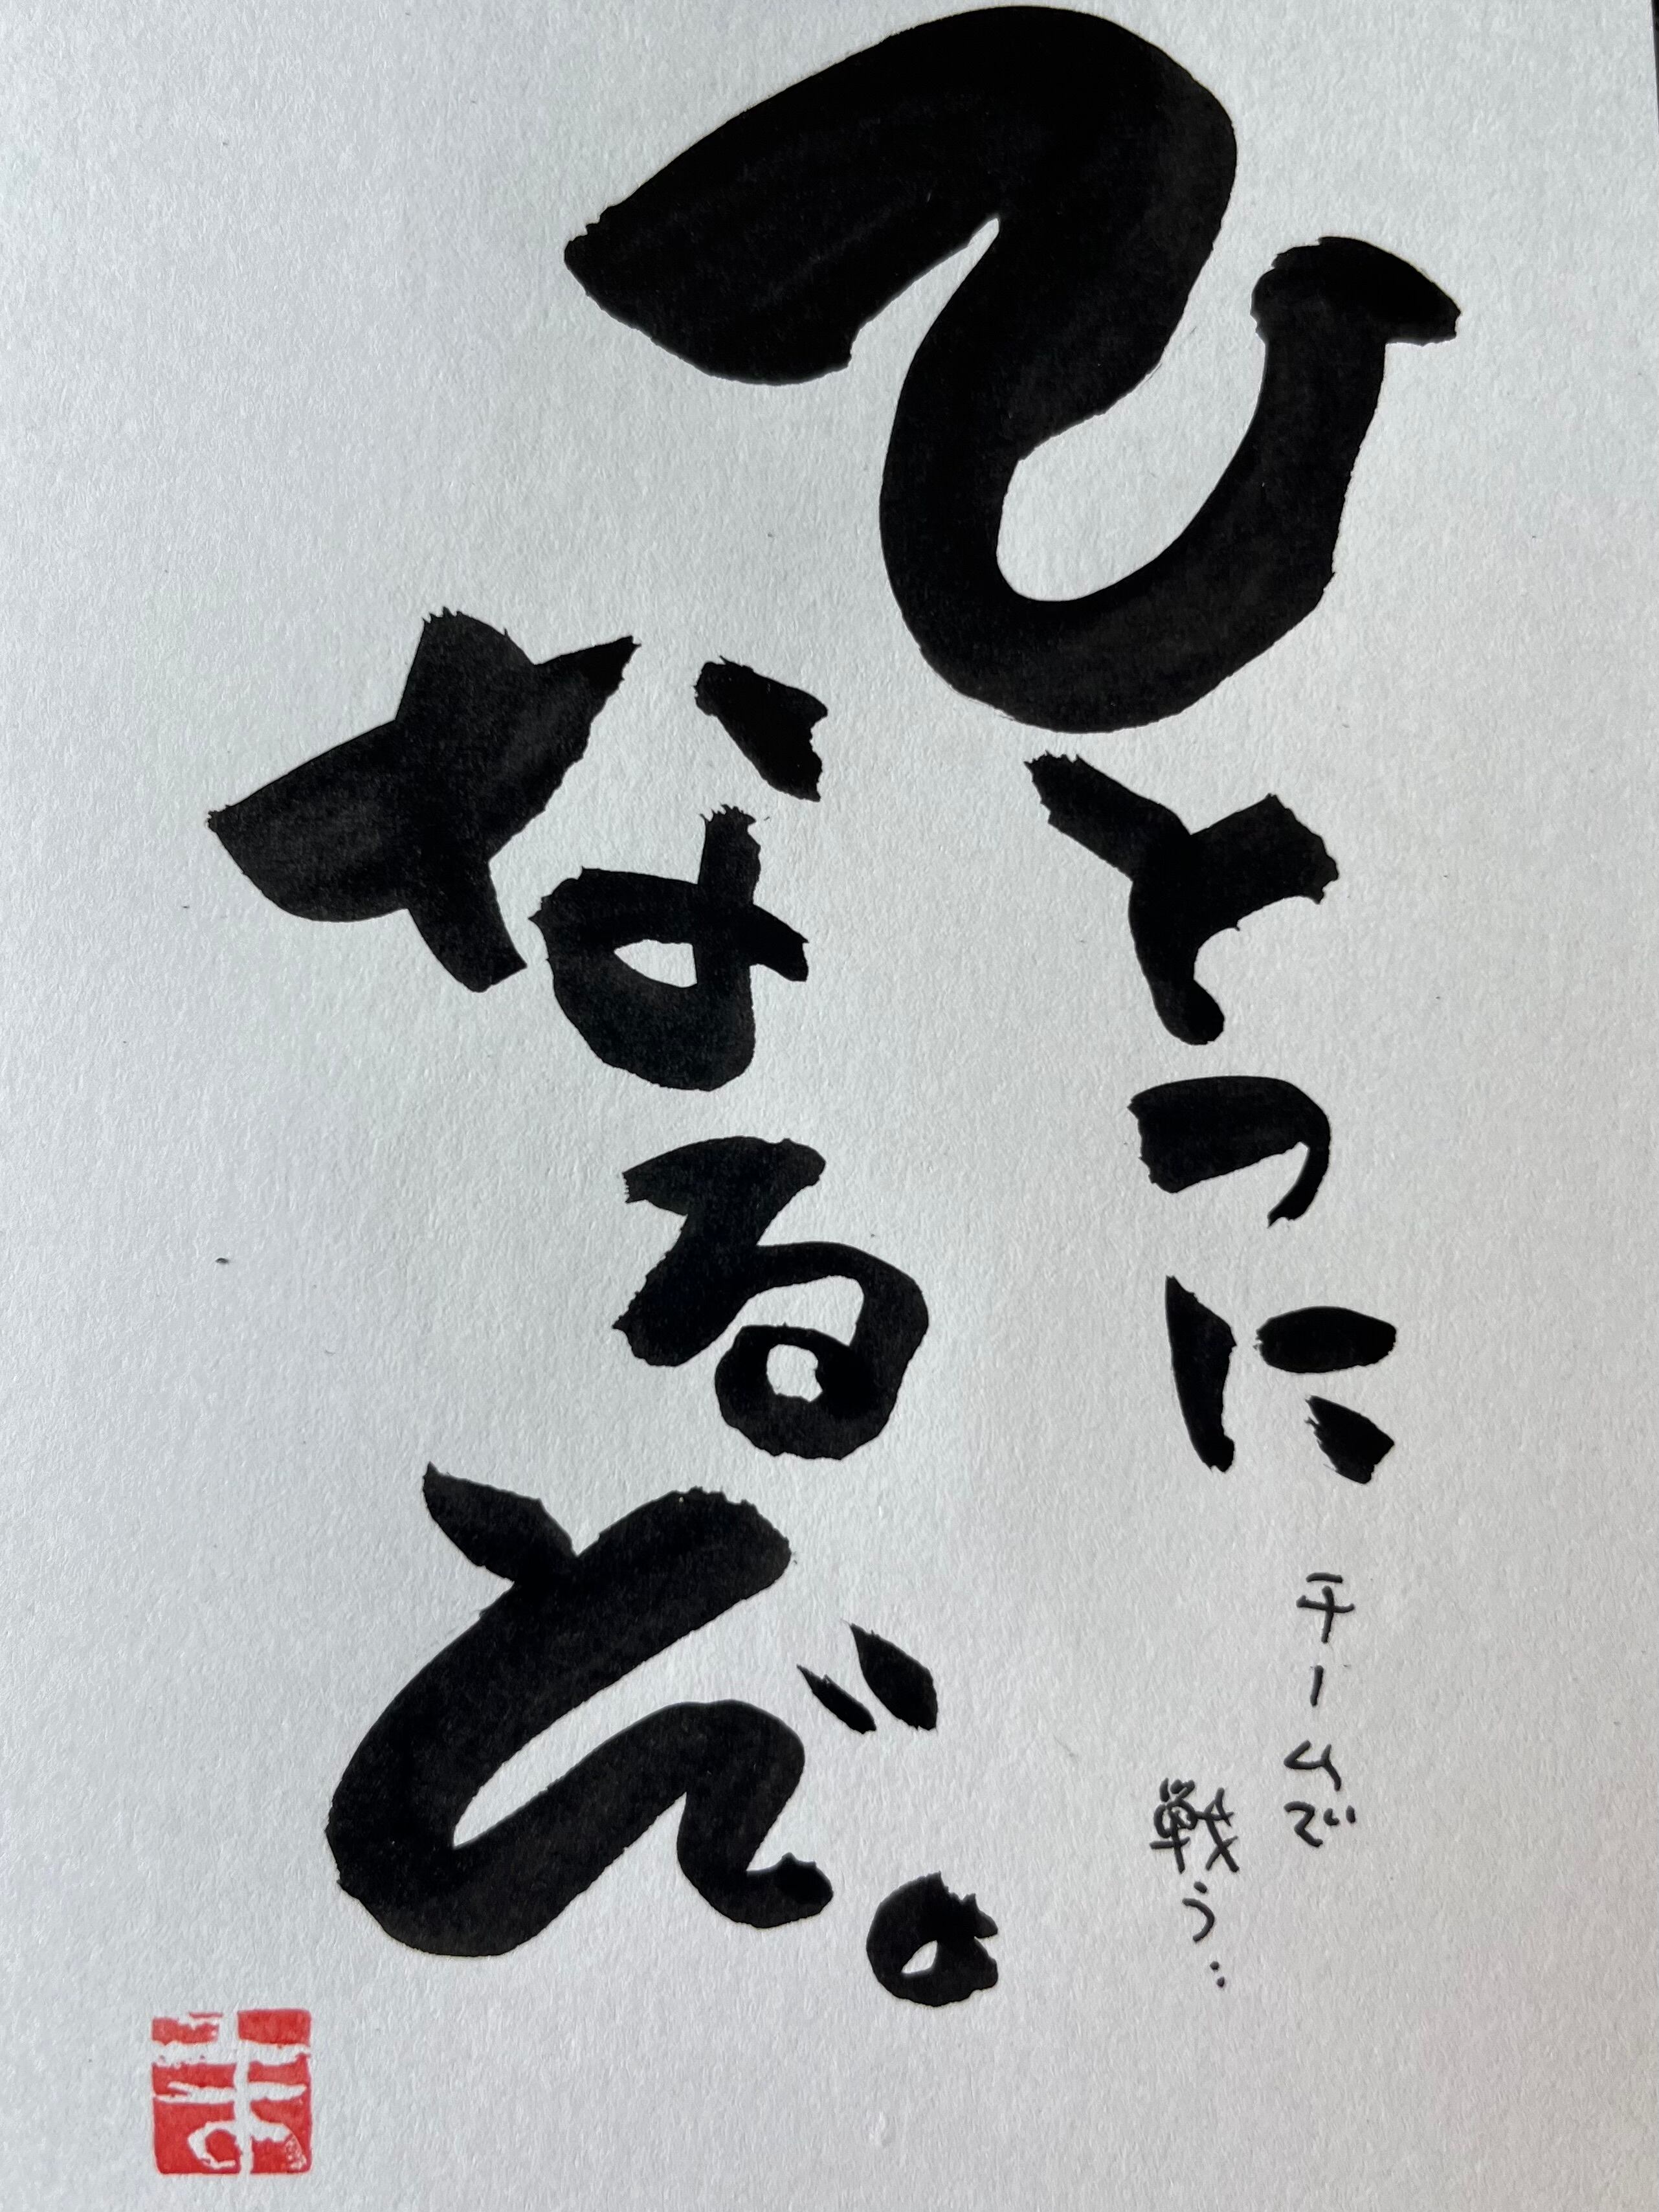 ひとつに
なるぞ。
チームで
戦う‥
ま